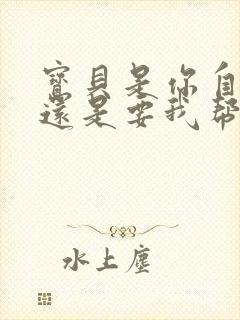 寶貝是你自
還是要我幫
水上塵